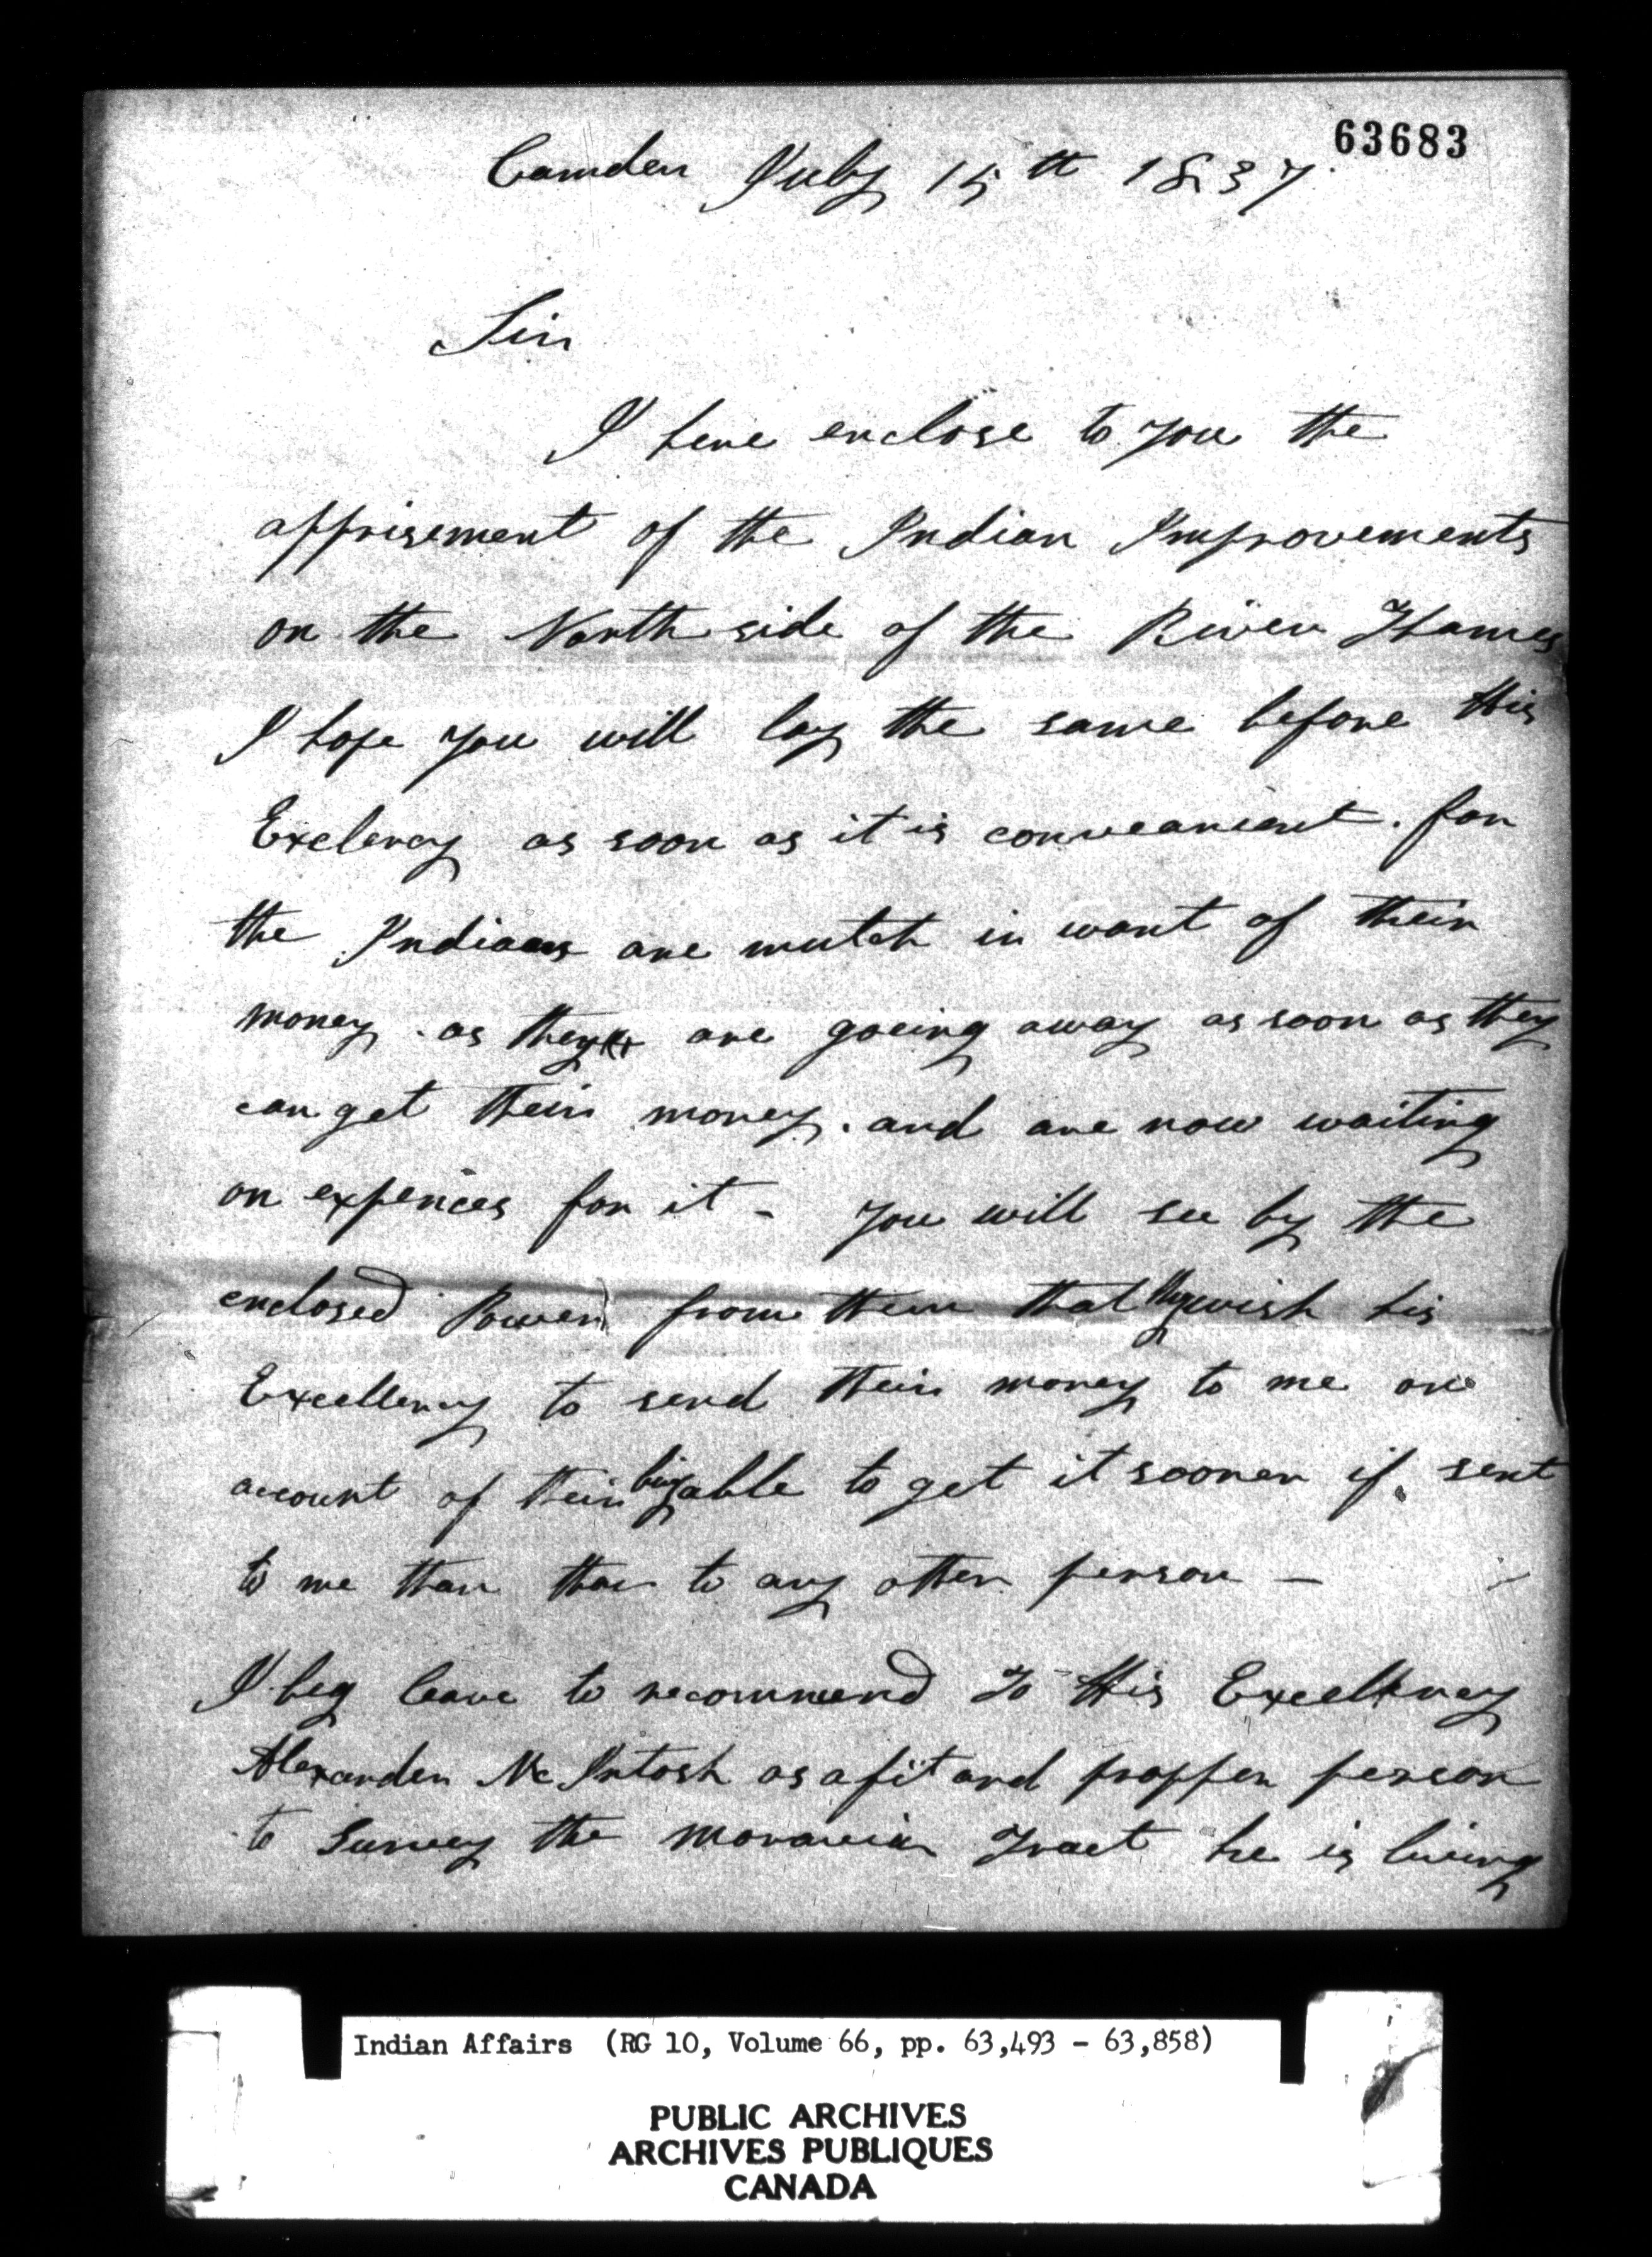 63683
Camden July 15th 1837.
Sir
I here enclose to you the
apprisement of the Indian Improvements
on the North side of the River Thames
I hope you will lay the same before His
Exclency as soon as it is conveanient. for
the Indians are mutch in want of their
money. as they are goeing away as soon as they
can get their money. and are now waiting
on expences for it - you will see by the
enclosed Power from them that they wish his
Excellency to send their money to me on
account of their being able to get it sooner if sent
to me than than to any other person -
I beg leave to recommend To His Excellency
Alexander McIntosh as a fit and propper person
to Survey the moravian Tract he is living
Indian Affairs (RG 10, Volume 66, pp. 63,493 - 63,858)
PUBLIC ARCHIVES
ARCHIVES PUBLIQUES
CANADA